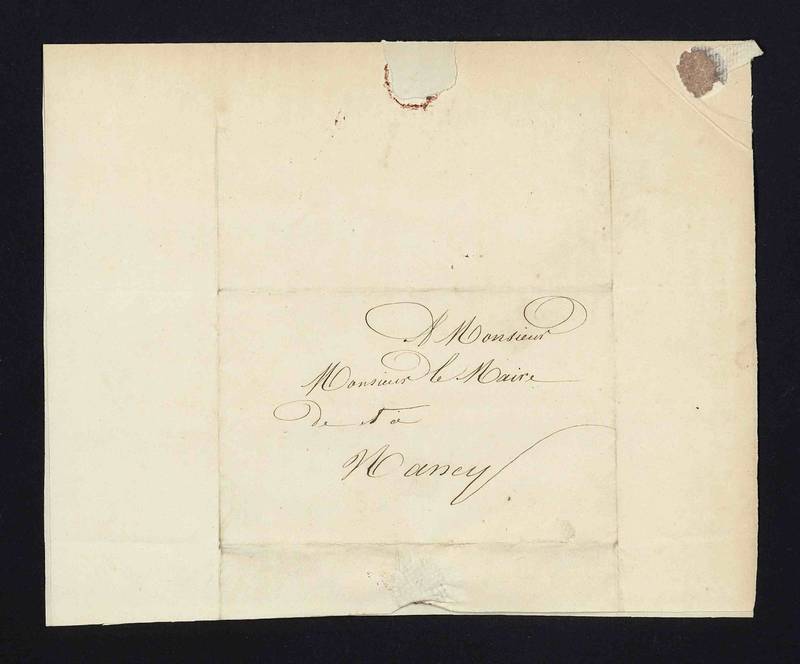 A Monsieur
Monsieur le Maire
de et à
Nancy